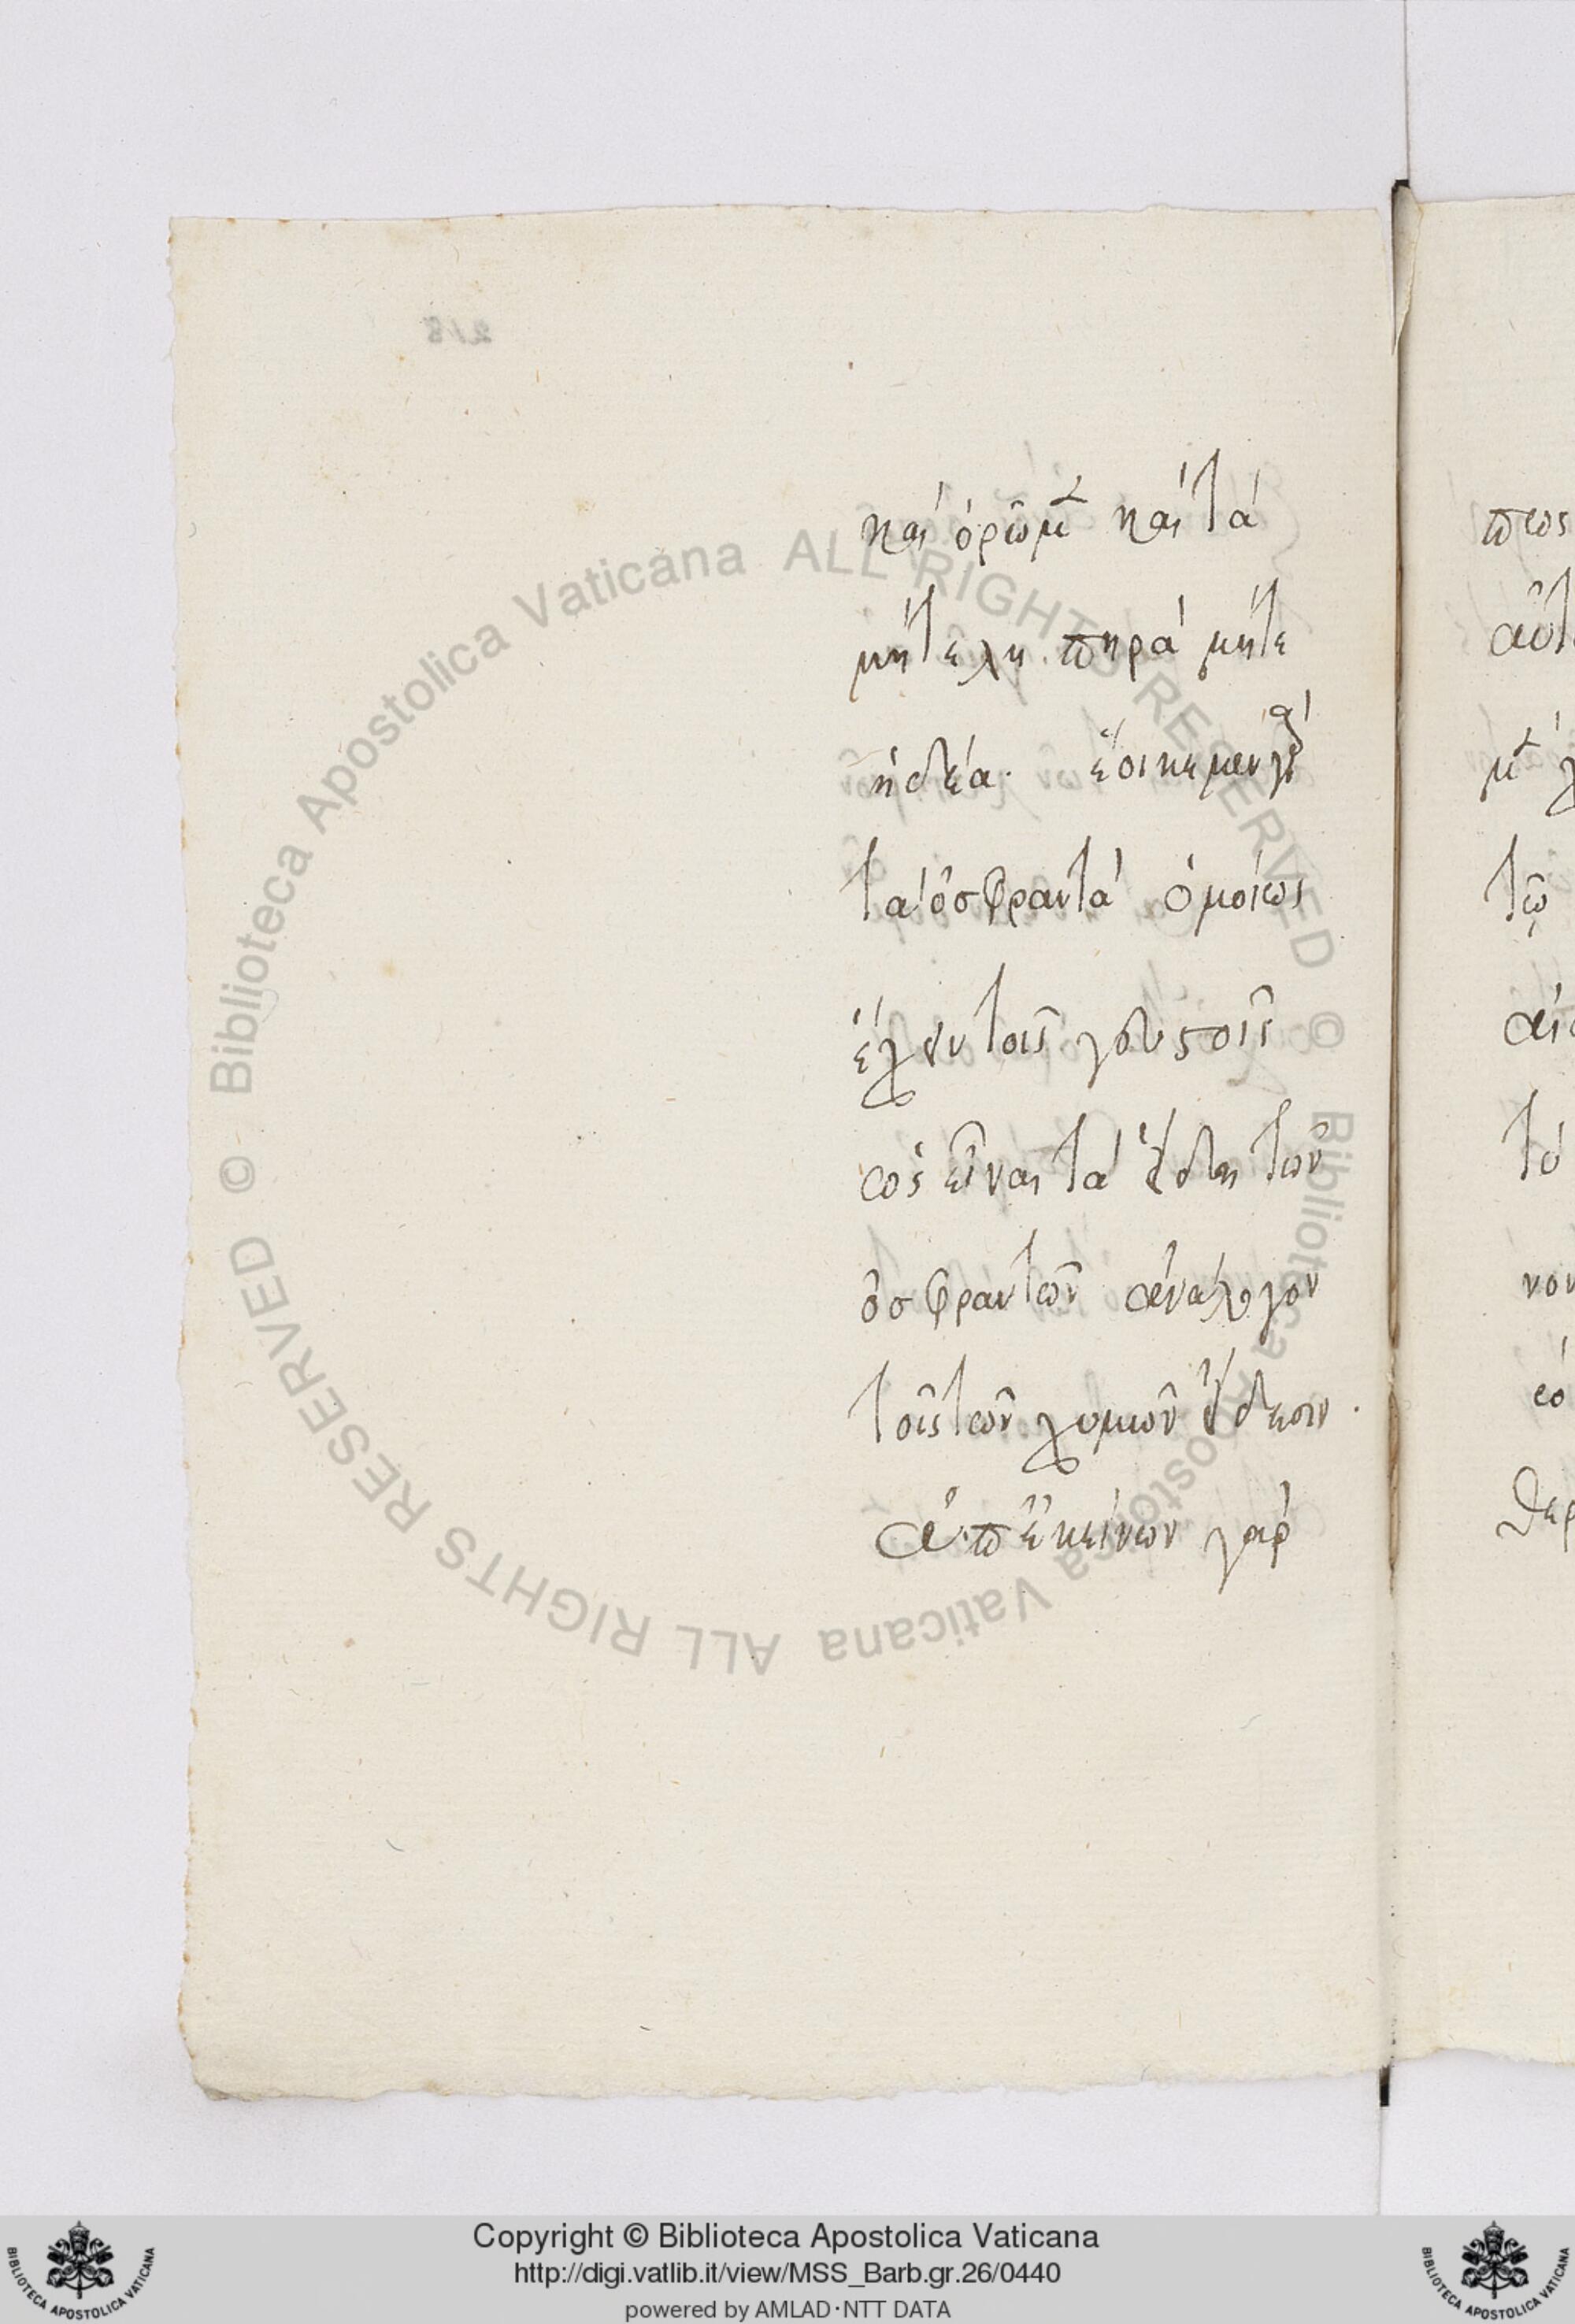 καὶ ὁρῶμ καὶ τὰ
μήτε λυπηρὰ μήτε
ἡδέα. ἔοικε μὲν γὰ
τὰ ὀσφραντὰ ὁμοίως
ἔχειν τοῖς γευστοῖς
ὡς εἶναι τὰ εἴδη τῶν
ὀσφραντῶν ἀνάλογον
τοῖς τῶν χυμῶν εἴδεσιν.
ἀπ ἐκείνων γὰρ
πως
τῷ
τὸ
218
Biblioteca Apostolica Vaticana ALL RIGHTS RESERVED ©
Biblioteca Apostolica Vaticana ALL RIGHTS RESERVED ©
Copyright © Biblioteca Apostolica Vaticana
http://digi.vatlib.it/view/MSS_Barb.gr.26/0440
powered by AMLAD·NTT DATA
BIBLIOTECA APOSTOLICA VATICANA
BIBLIOTECA APOSTOLICA VATICANA